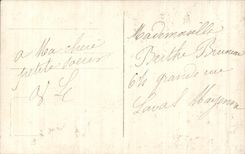 a Ma chère
petite soeur
Mademoiselle
Berthe Bruneau
64 grande rue
Laval Mayenne